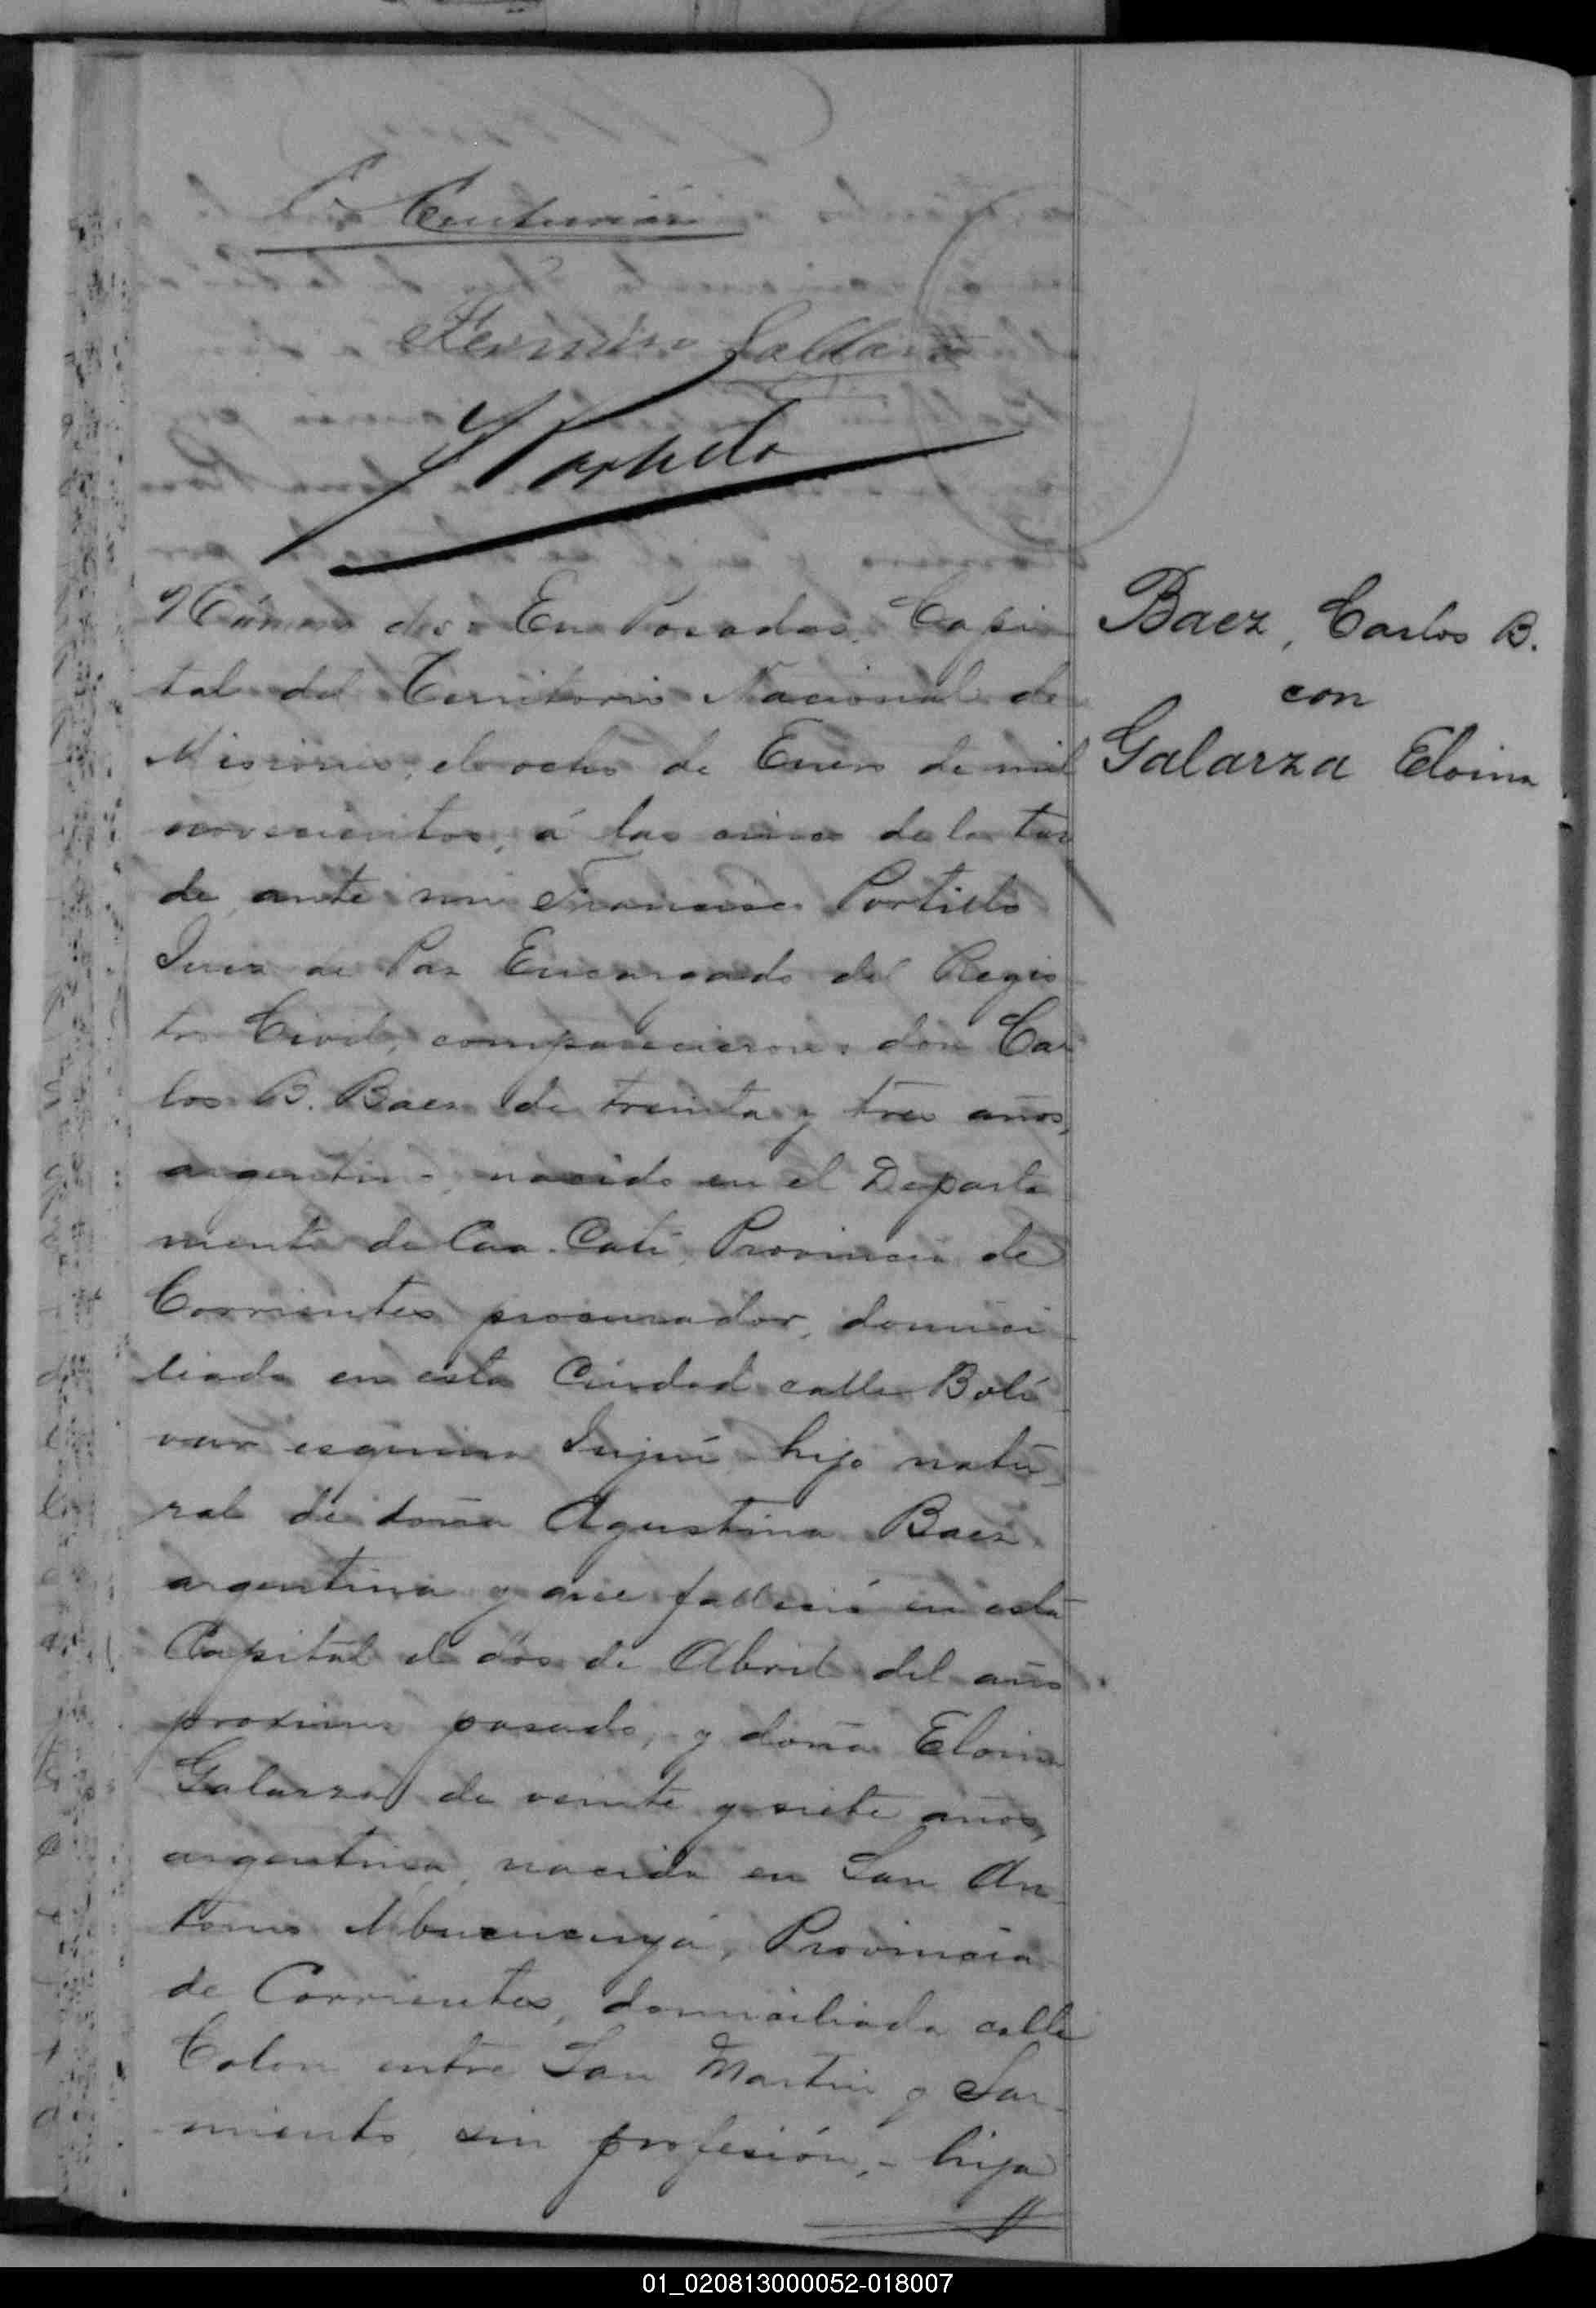 C. Centurión
Fermin Gallar
F Portillo
Número dos. En Posadas, Capi
tal del Territorio Nacional de
Misiones, el ocho de Enero de mil
novecientos, á las cinco de la tar
de, ante mi Francisco Portillo
Juez de Paz Encargado del Regis
tro Civil, comparecieron: don Car
los B. Baez de treinta y tres años,
argentino, nacido en el Departa
mento de Caa-Catí, Provincia de
Corrientes, procurador, domici
liado en esta Ciudad calle Bolí
var esquina Jujuí - hijo natu
ral de doña Agustina Baez
argentina y que falleció en esta
Capital el dos de Abril del año
proximo pasado, y doña Eloina
Galarza de veinte y siete años,
argentina, nacida en San An
tonio Mbucuruyá, Provincia
de Corrientes, domiciliada calle
Colon entre San Martin y Sar
miento, sin profesión, - hija
Baez, Carlos B.
con
Galarza Eloina
01_020813000052-018007